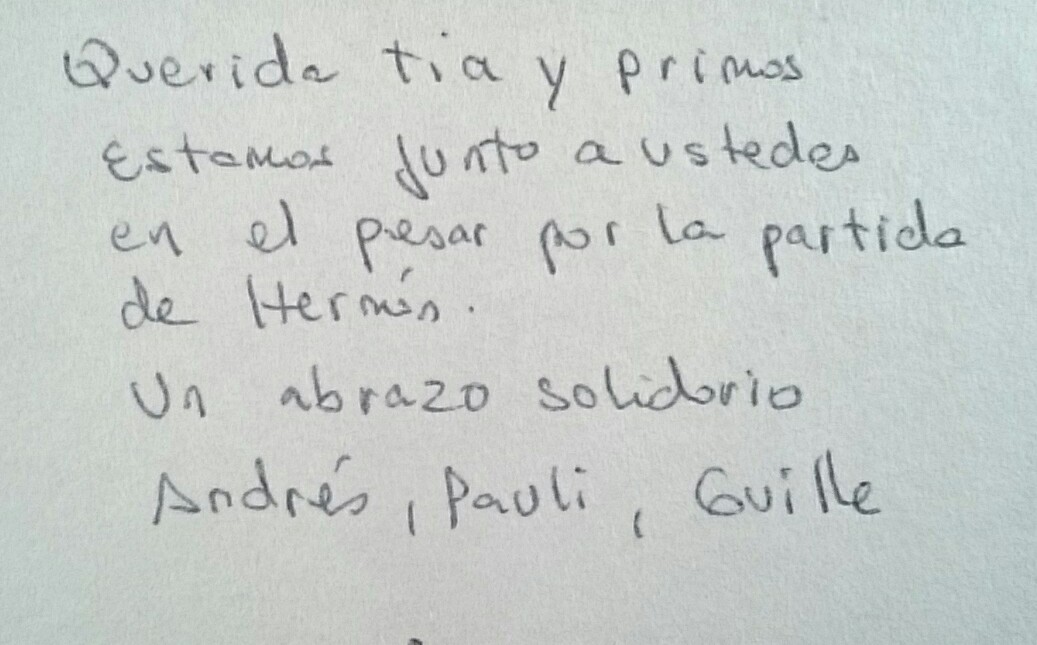 Querida tia y primos
Estamos junto a ustedes
en el pesar por la partida
de Hermán.
Un abrazo solidario
Andrés, Pauli, Guille